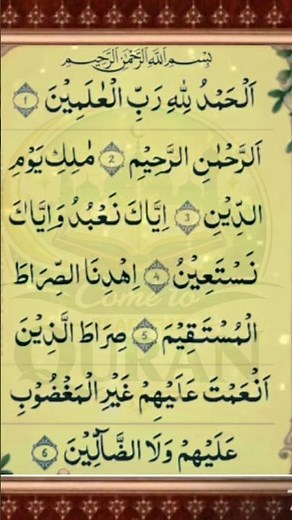 بِسْمِ اللَّهِ الرَّحْمَٰنِ الرَّحِيمِ
اَلْحَمْدُ لِلّٰهِ رَبِّ الْعٰلَمِيْنَ ۝١
الرَّحْمٰنِ الرَّحِيْمِ ۝2 مٰلِكِ يَوْمِ
الدِّيْنِ ۝3 اِيَّاكَ نَعْبُدُ وَاِيَّاكَ
نَسْتَعِيْنُ ۝4 اِهْدِنَا الصِّرَاطَ
Come to
الْمُسْتَقِيْمَ ۝5 صِرَاطَ الَّذِيْنَ
QURAN
اَنْعَمْتَ عَلَيْهِمْ غَيْرِ الْمَغْضُوْبِ
عَلَيْهِمْ وَلَا الضَّآلِّيْنَ ۝6